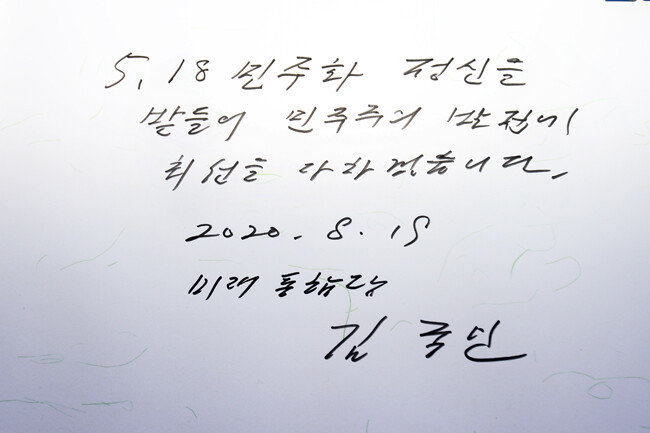 5, 18 민주화 정신을
받들어 민주주의 발전에
최선을 다하겠습니다.
2020. 8. 19
미래통합당
김국민